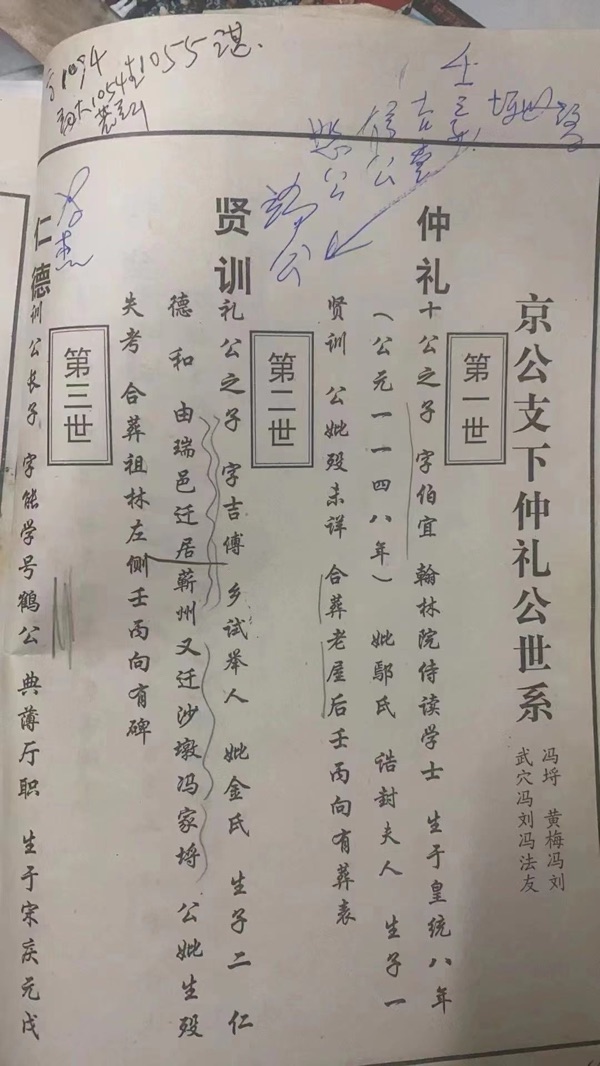 京公支下仲礼公世系
冯埒 黄梅冯刘
武穴冯刘冯法友
第一世
仲礼
十公之子 字伯宜 翰林院侍读学士 生于皇统八年
（公元一一四八年） 妣鄢氏 诰封夫人 生子一
贤训 公妣殁未详 合葬老屋后壬丙向有葬表
第二世
贤训
礼公之子 字吉傅 乡试举人 妣金氏 生子二 仁
德 和 由瑞邑迁居蕲州又迁沙墩冯家埒 公妣生殁
失考 合葬祖林左侧壬丙向有碑
第三世
仁德
训公长子 字能学号鹤公 典薄厅职 生于宋庆元戊
1094
1054 1055
公
公
公